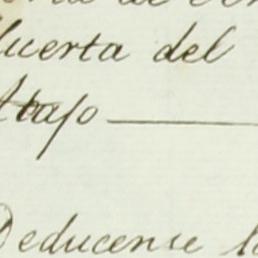 Huerta del
Abajo
Deducense